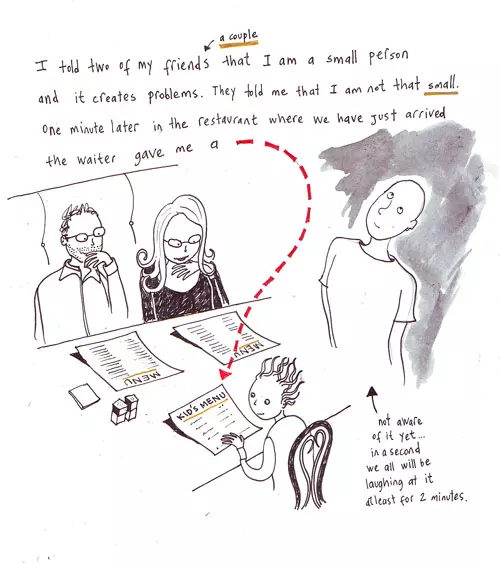 a couple
I told two of my friends that I am a small person
and it creates problems. They told me that I am not that small.
One minute later in the restaurant where we have just arrived
the waiter gave me a
MENU
MENU
KID'S MENU
not aware
of it yet...
in a second
we all will be
laughing at it
at least for 2 minutes.